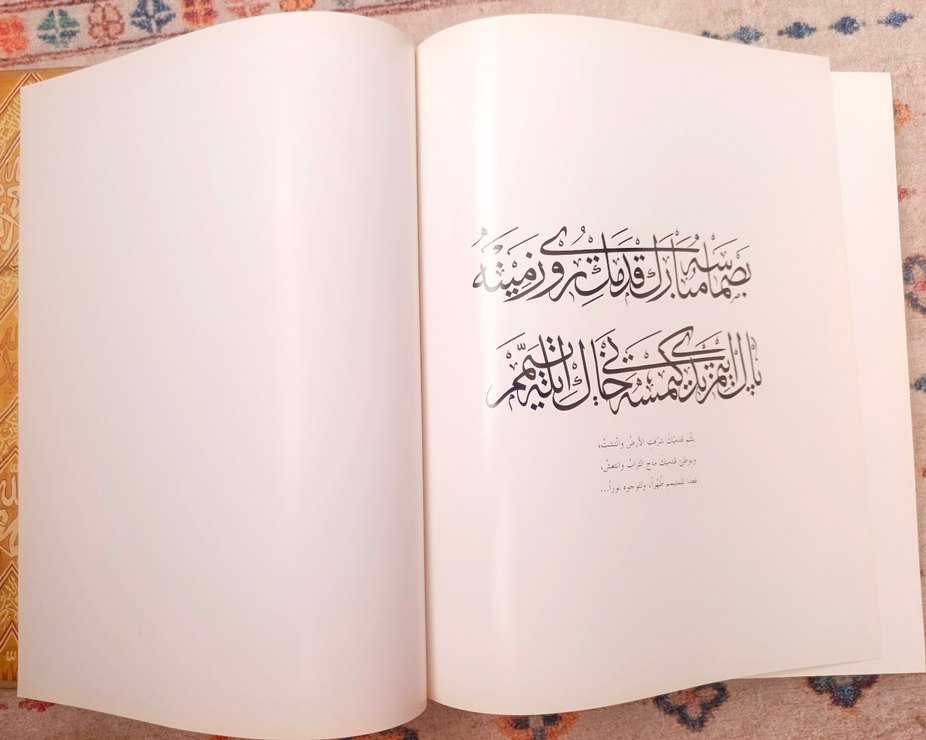 بصماسه مبارك قدمك روى زمينه
پاك ايتمز ايدى كيمسه يى خاك ايله تيمم
بلثم قدميْكَ شرُفتِ الأرضُ وانْتشتْ،
وبوطئ قدميكَ ماج الترابُ وانتعشْ،
فغدا للمتيمم طُهراً، وللوجوه نوراً...